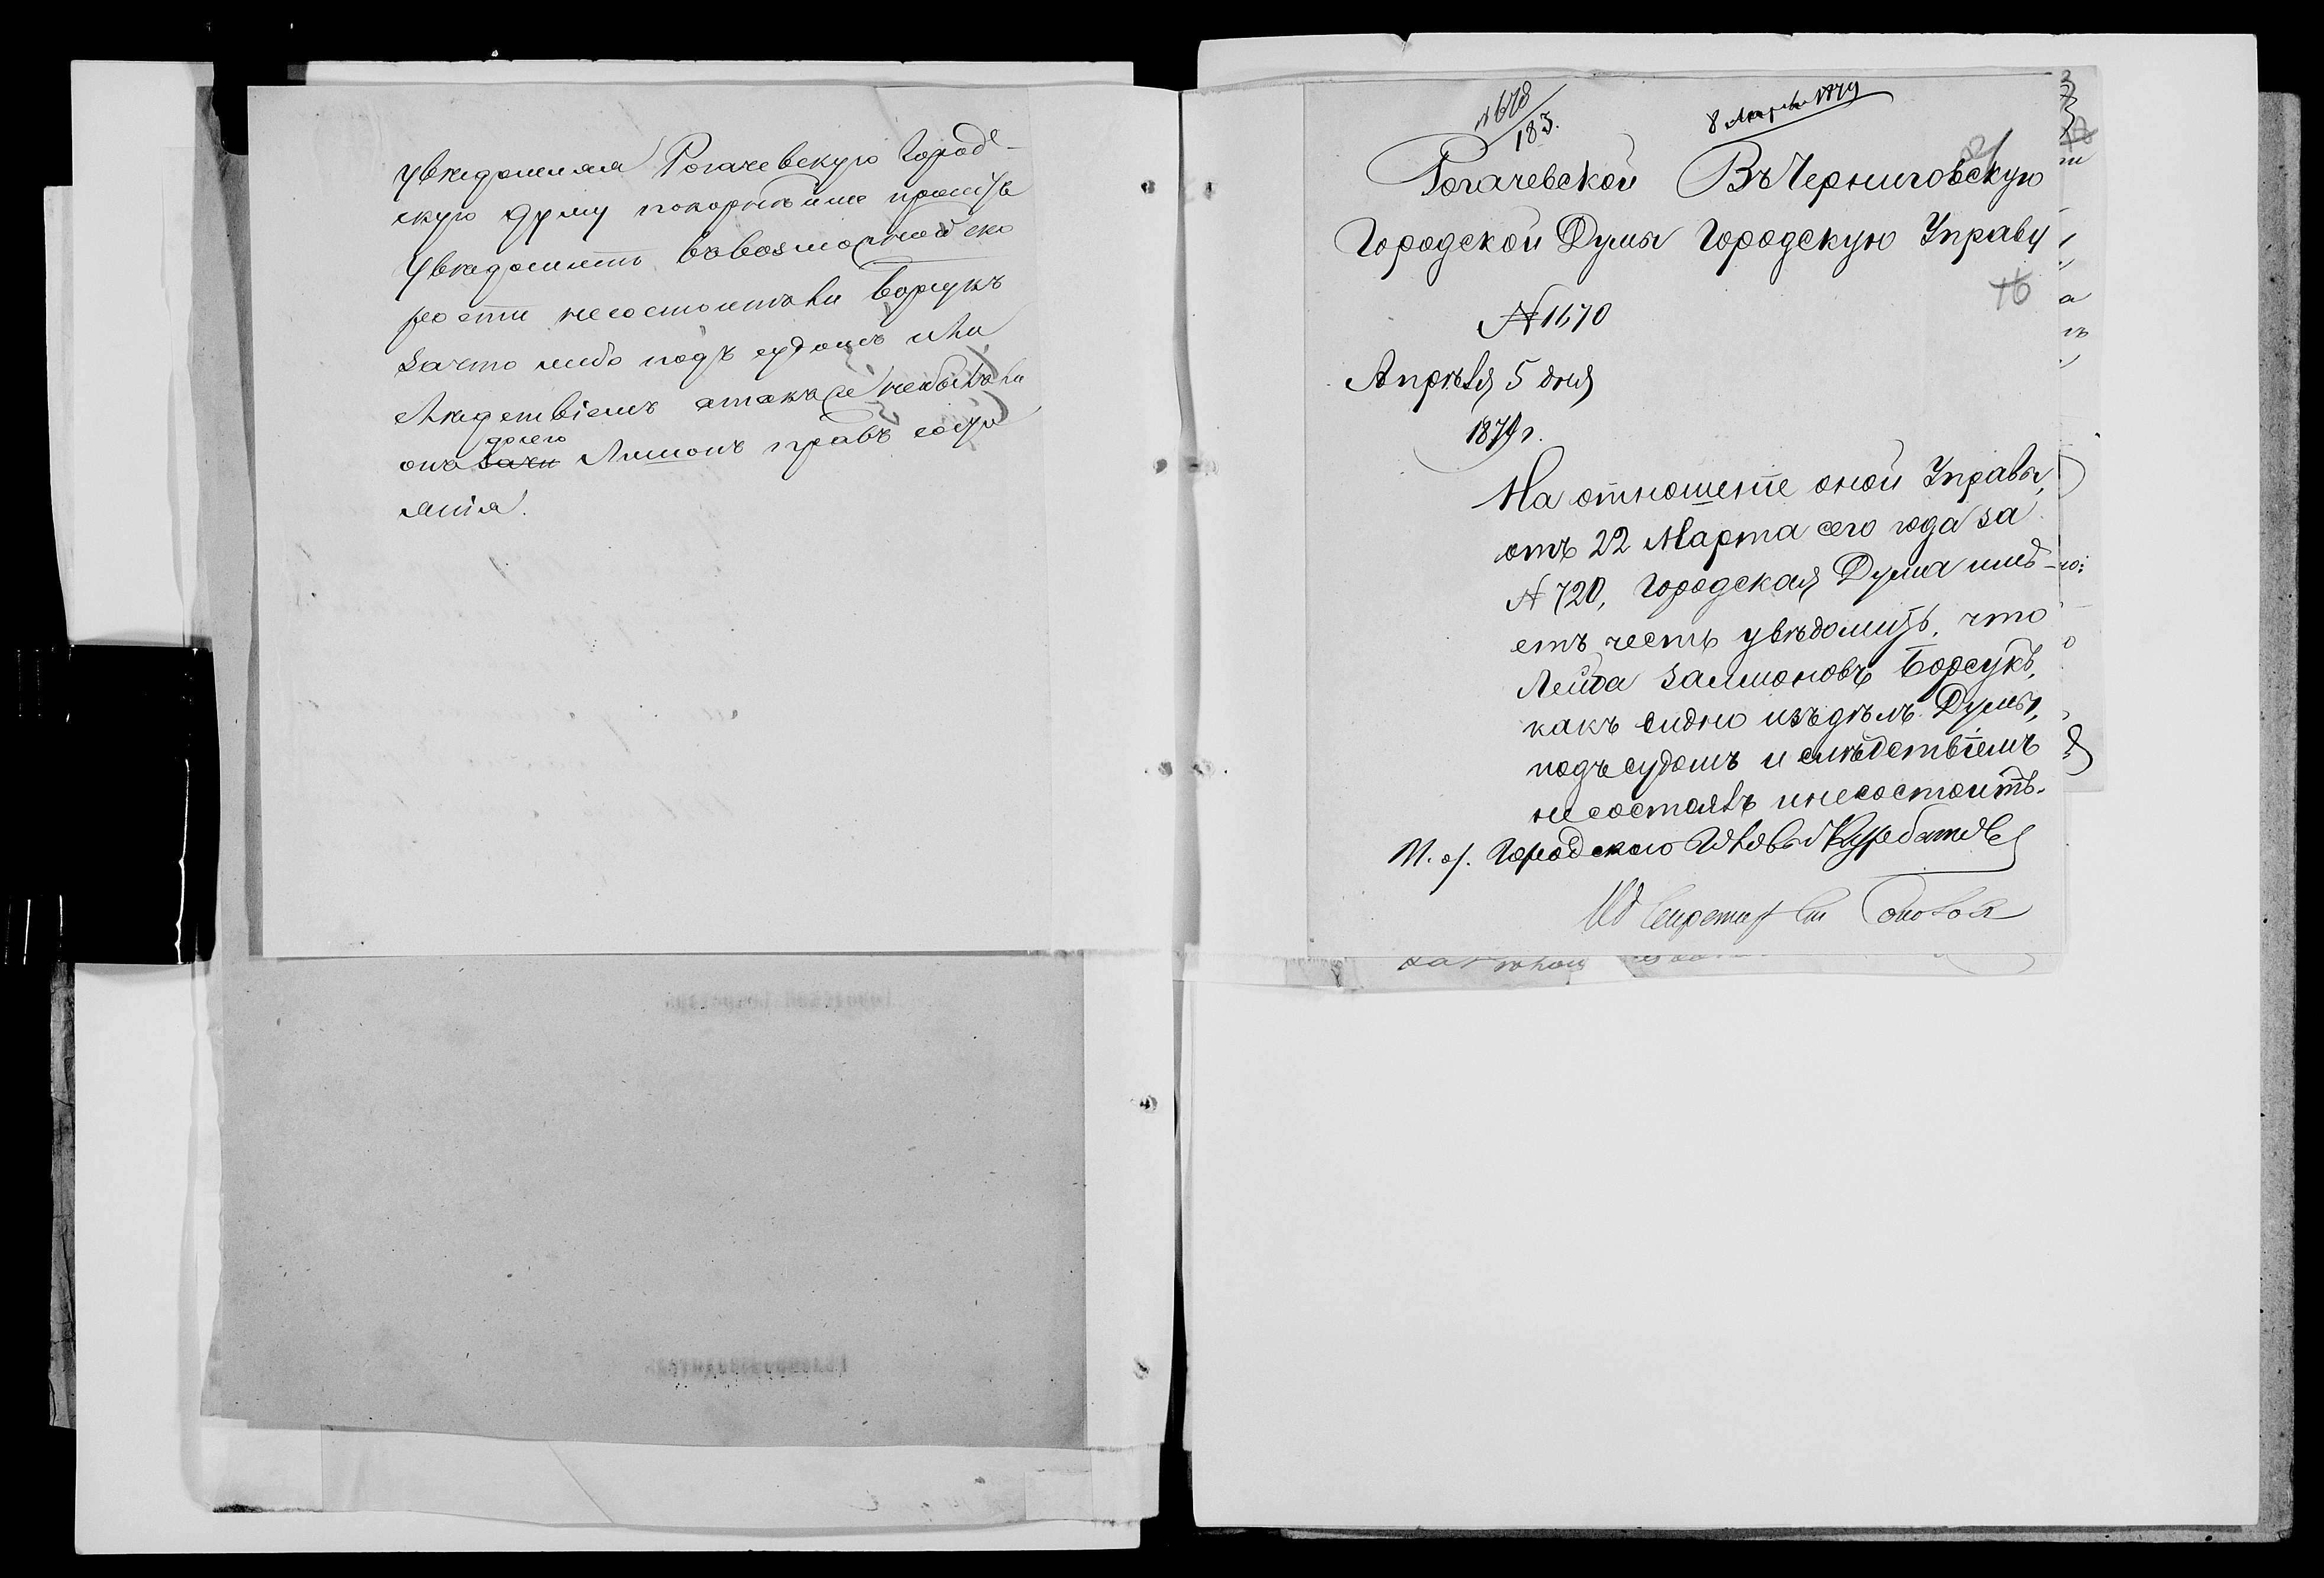 увѣдомляя Рогачевскую Город-
скую Думу покорнѣйше проситъ
увѣдомить въ возможной ско
рости несостоитъ ли Борсукъ
зачто либо подъ судомъ или
слѣдствіемъ атакже небылъ ли
досего
онъ лишонъ правъ состо
янія.
183.
8 Апрѣля 1879
Рогачевской
Городской Думы
Въ Черниговскую
Городскую Управу
№ 1670
16
Апрѣля 5 дня
1879 г.
На отношеніе оной Управы,
отъ 22 Марта сего года за
№ 720, Городская Дума имѣ-
етъ честь увѣдомить, что
Лейба Залмоновъ Борсукъ,
какъ видно изъ дѣлъ Думы,
подъ судомъ и слѣдствіемъ
не состоялъ и не состоитъ.
И. д. Городского Головы
Ид Секретаря